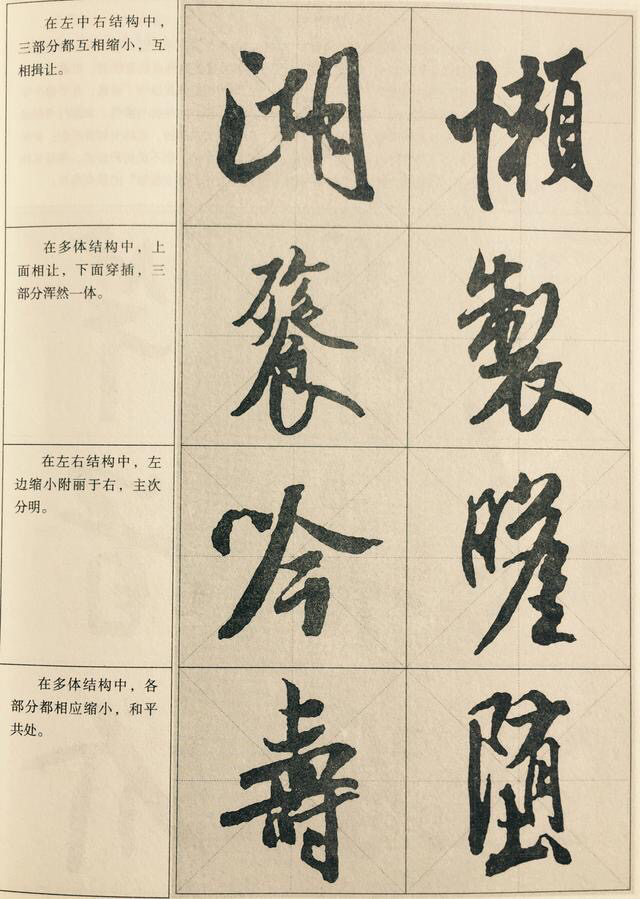 在左中右结构中，
三部分都互相缩小，互
相揖让。
湖 懶
在多体结构中，上
面相让，下面穿插，三
部分浑然一体。
餐 製
在左右结构中，左
边缩小附丽于右，主次
分明。
吟
在多体结构中，各
部分都相应缩小，和平
共处。
壽 堕